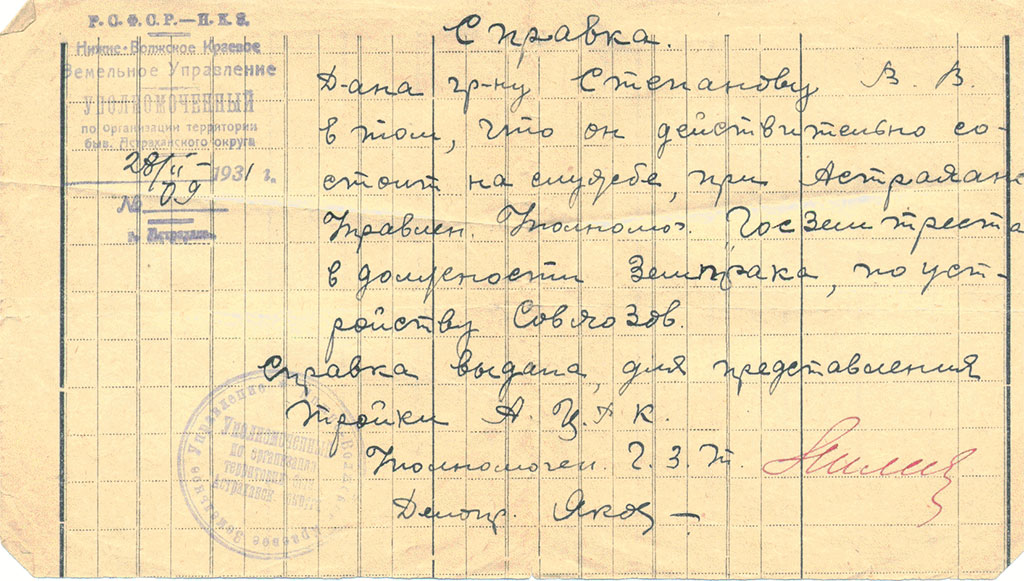 Р.С.Ф.С.Р.—Н.К.З.
Нижне-Волжское Краевое
Земельное Управление
УПОЛНОМОЧЕННЫЙ
по организации территории
быв. Астраханского округа
28/II – 1931 г.
№ 09
г. Астрахань.
Справка.
Дана гр-ну Степанову В. В.
в том, что он действительно со-
стоит на службе, при Астрахан
Управлен. Уполномоч. Госземтреста
в должности Землрака, по уст-
ройству Совхозов.
Справка выдана, для представления
Тройки А.Ц.А.К.
Уполномочен. Г.З.Т.
Делопр.
Уполномоченный
по организации
территории быв.
Астраханск. окр.